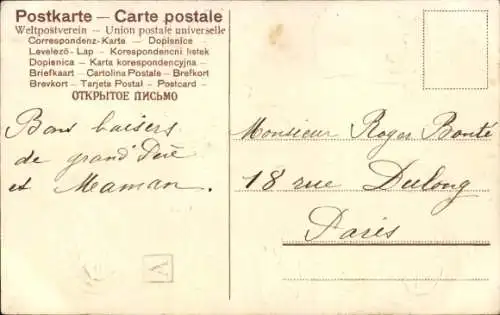 Postkarte — Carte postale
Weltpostverein — Union postale universelle
Correspondenz-Karte — Dopisnice
Levelező-Lap — Korespondencni listek
Dopisnica — Karta korespondencyjna —
Briefkaart — Cartolina Postale — Brefkort
Brevkort — Tarjeta Postal — Postcard —
ОТКРЫТОЕ ПИСЬМО
Bons baisers
de grand Père
et Maman.
Monsieur Roger Bonté
18 rue Dulong
Paris
A